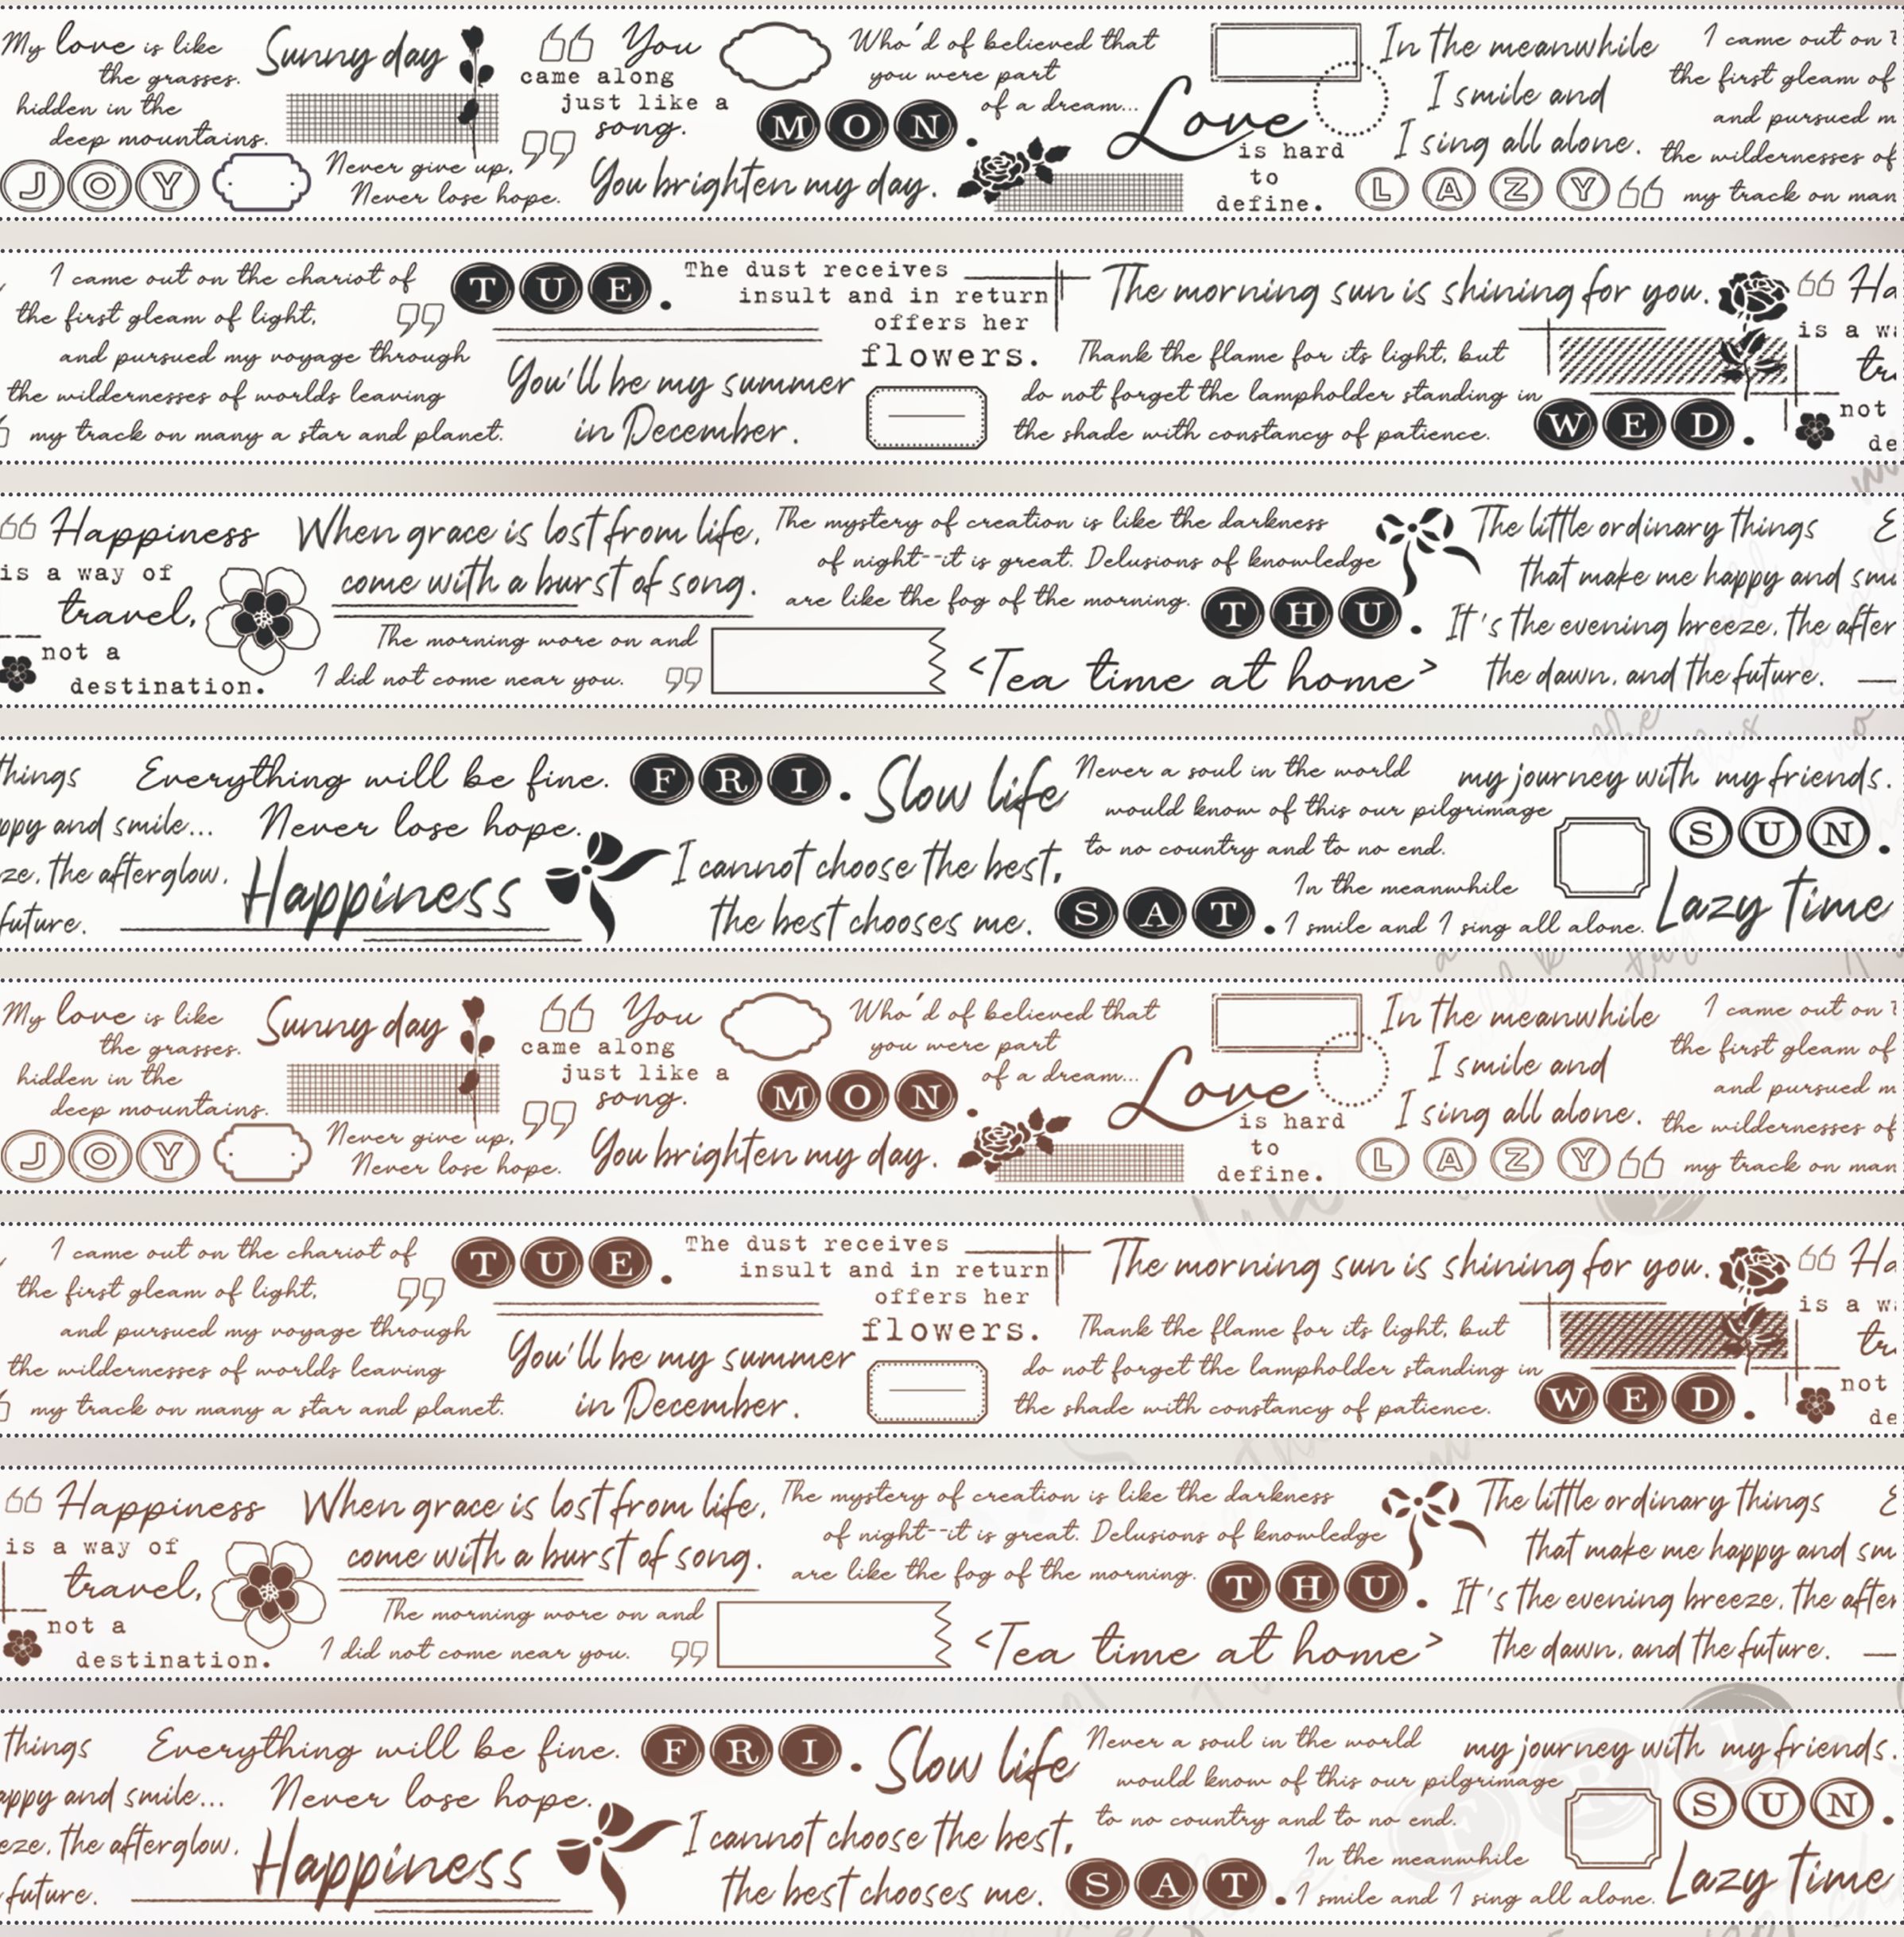 My love is like
the grasses.
hidden in the
deep mountains.
JOY
Sunny day
Never give up,
Never lose hope.
You
came along
just like a
song.
MON.
You brighten my day.
Who'd of believed that
you were part
of a dream...
Love
is hard
to
define.
In the meanwhile
I smile and
I sing all alone.
LAZY
I came out on
the first gleam of
and pursued
the wildernesses of
my track on
I came out on the chariot of
the first gleam of light,
and pursued my voyage through
the wildernesses of worlds leaving
my track on many a star and planet.
TUE.
You'll be my summer
in December.
The dust receives
insult and in return
offers her
flowers.
The morning sun is shining for you.
Thank the flame for its light, but
do not forget the lampholder standing in
the shade with constancy of patience.
WED.
Ha
is a
not
de
Happiness
is a way of
travel,
not a
destination.
When grace is lost from life,
come with a burst of song.
The morning wore on and
I did not come near you.
The mystery of creation is like the darkness
of night--it is great. Delusions of knowledge
are like the fog of the morning.
THU.
<Tea time at home>
The little ordinary things
that make me happy and
It's the evening breeze, the after
the dawn, and the future.
things
ppy and smile...
ze, the afterglow,
future.
Everything will be fine.
Never lose hope.
Happiness
FRI.
Slow life
I cannot choose the best,
the best chooses me.
SAT.
Never a soul in the world
would know of this our pilgrimage
to no country and to no end.
In the meanwhile
I smile and I sing all alone.
my journey with my friends.
SUN.
Lazy time
My love is like
the grasses.
hidden in the
deep mountains.
JOY
Sunny day
Never give up,
Never lose hope.
You
came along
just like a
song.
MON.
You brighten my day.
Who'd of believed that
you were part
of a dream...
Love
is hard
to
define.
In the meanwhile
I smile and
I sing all alone.
LAZY
I came out on
the first gleam of
and pursued
the wildernesses of
my track on
I came out on the chariot of
the first gleam of light,
and pursued my voyage through
the wildernesses of worlds leaving
my track on many a star and planet.
TUE.
You'll be my summer
in December.
The dust receives
insult and in return
offers her
flowers.
The morning sun is shining for you.
Thank the flame for its light, but
do not forget the lampholder standing in
the shade with constancy of patience.
WED.
Ha
is a
not
de
Happiness
is a way of
travel,
not a
destination.
When grace is lost from life,
come with a burst of song.
The morning wore on and
I did not come near you.
The mystery of creation is like the darkness
of night--it is great. Delusions of knowledge
are like the fog of the morning.
THU.
<Tea time at home>
The little ordinary things
that make me happy and
It's the evening breeze, the after
the dawn, and the future.
things
appy and smile...
eze, the afterglow,
future.
Everything will be fine.
Never lose hope.
Happiness
FRI.
Slow life
I cannot choose the best,
the best chooses me.
SAT.
Never a soul in the world
would know of this our pilgrimage
to no country and to no end.
In the meanwhile
I smile and I sing all alone.
my journey with my friends.
SUN.
Lazy time